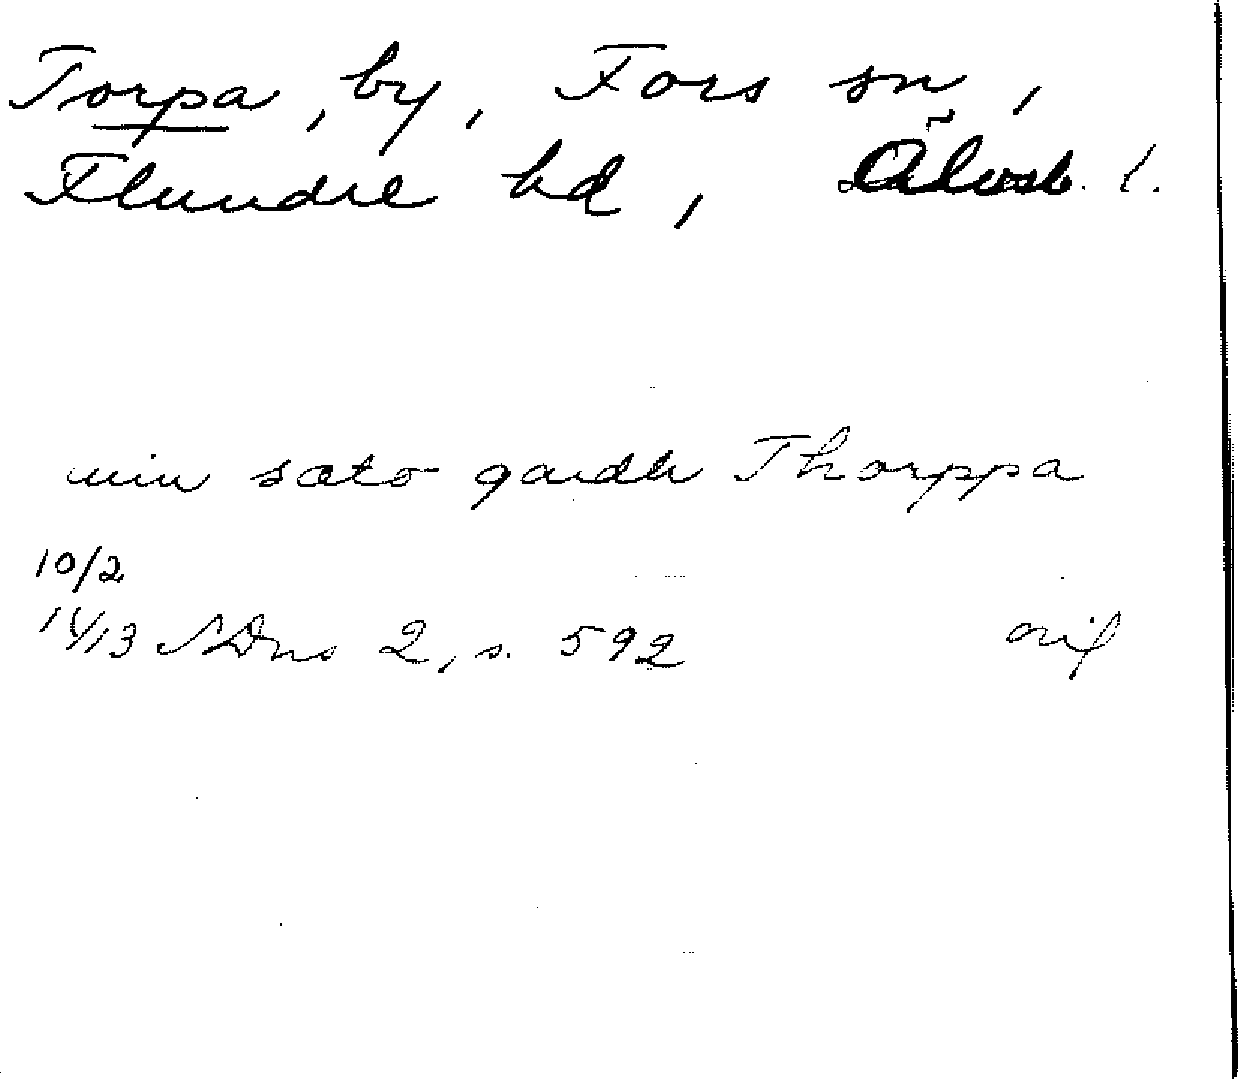 Torpa, by, Fors sn,
Flundre hd, Älvsb. l.
min sæto gardh Thorppa
10/2
1413 SDns 2, s. 592 orig